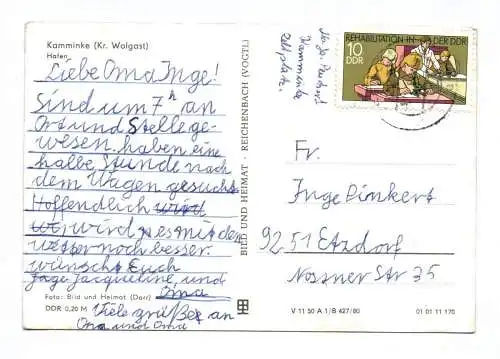 Kamminke (Kr. Wolgast)
Hafen
Liebe Oma Inge!
Sind um 7 h an
Ort und Stelle ge-
wesen. haben eine
halbe Stunde nach
dem Wagen gesucht
Hoffendlich wird
wird es mit den
wetter noch besser.
wünscht Euch
Jacqueline, und
Oma
Foto: Bild und Heimat (Darr)
DDR 0,20 M
Viele grüße an
Opa und Oma
BILD UND HEIMAT · REICHENBACH (VOGTL)
Kamminke
Zeltplatz.
REHABILITATION IN DER DDR
10
DDR
Fr.
Inge Pinkert
9251 Etzdorf
Nossner Str 35
V 11 50 A 1/B 427/80
01 01 11 176